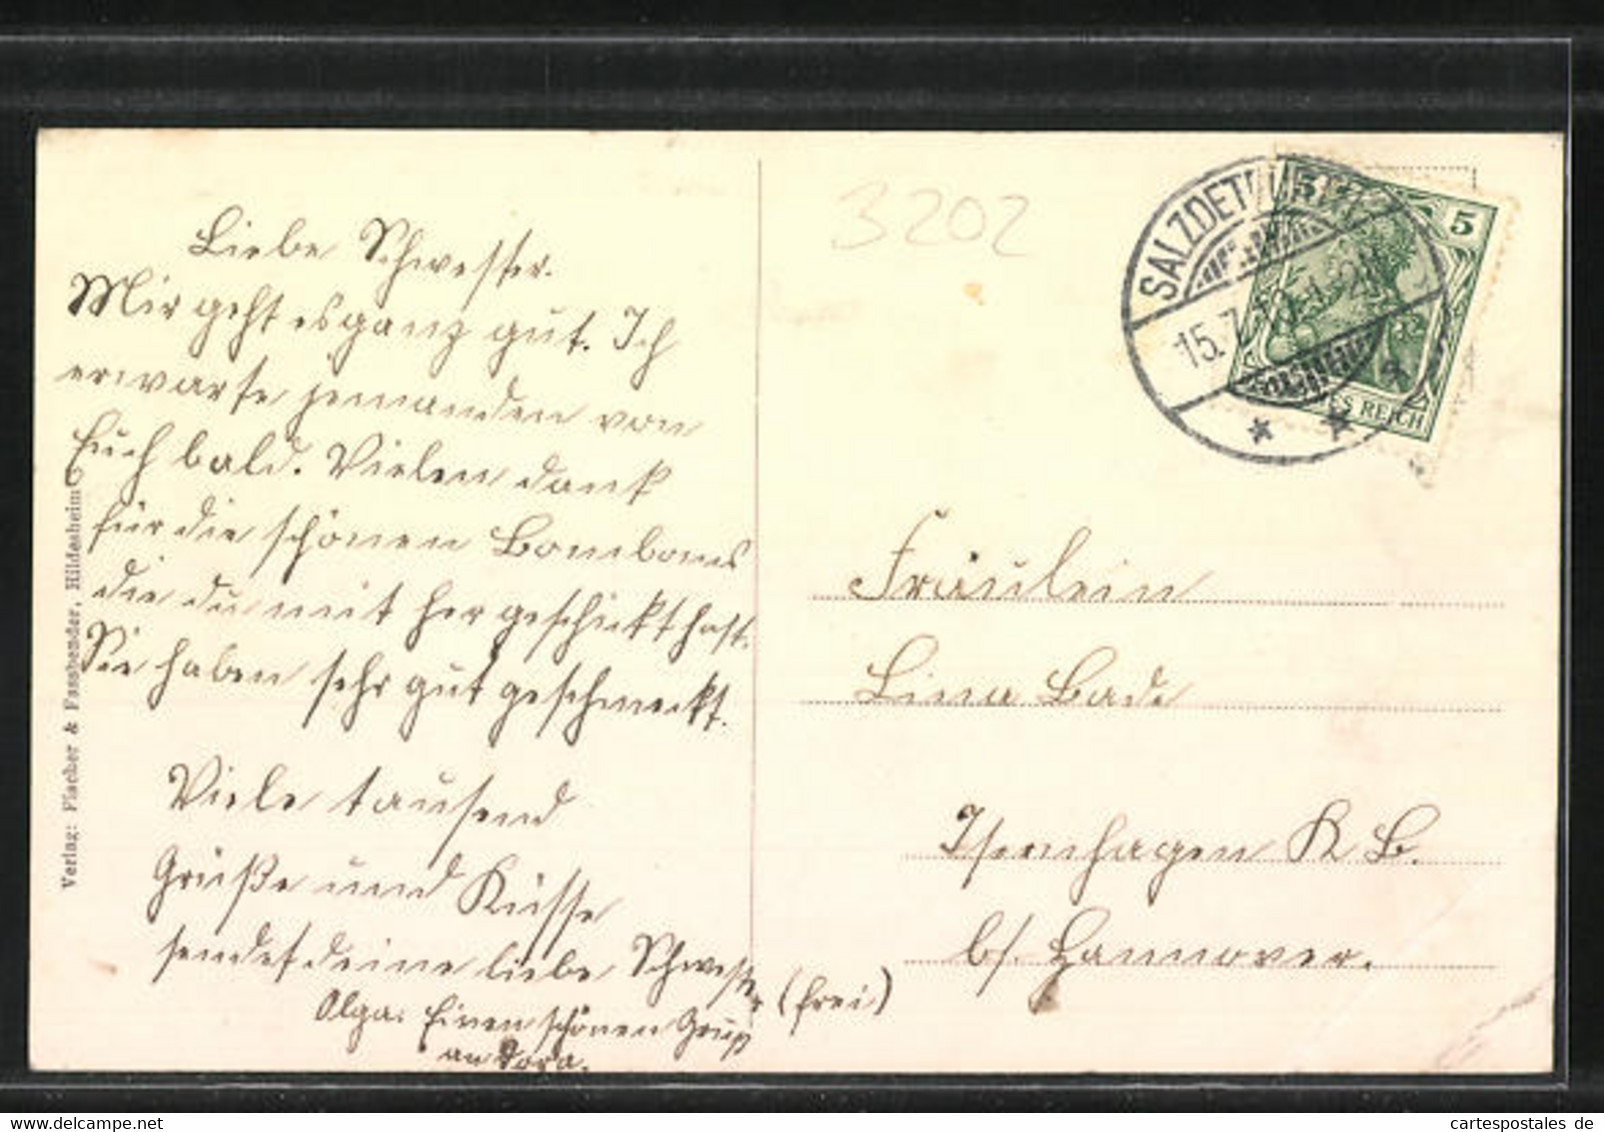 Liebe Schwester.
Mir geht es ganz gut. Ich
erwarte jemanden von
Euch bald. Vielen dank
für die schönen Bombons
die du mit her geschickt hast.
Sie haben sehr gut geschmeckt.
Viele tausend
Grüße und Küsse
sendet deine liebe Schwester
Olga. Einen schönen Gruß
an Dora.
(frei)
Verlag: Fischer & Fassbender, Hildesheim
3202
SALZDETFURTH
15.7.
5
5
REICH
Fräulein
Lina Bade
Isernhagen K B.
b/ Hannover.
cartespostales de